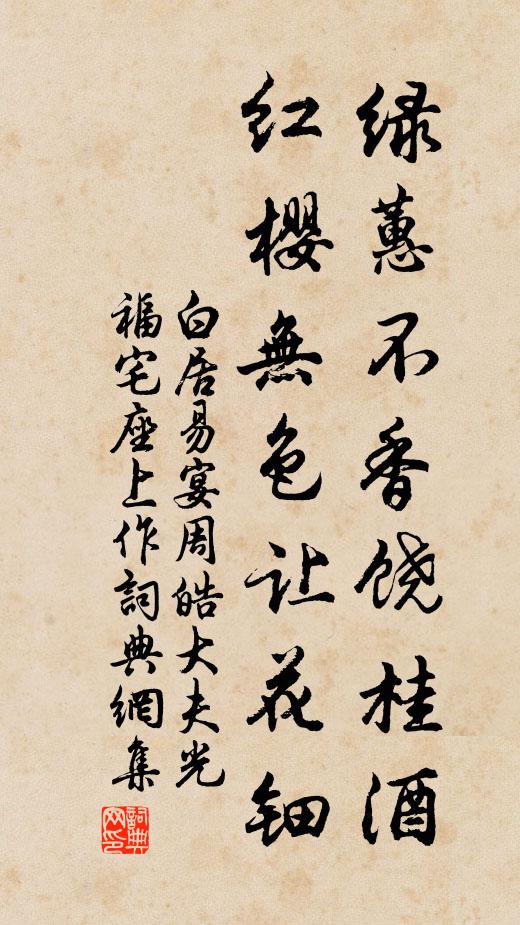 绿蕙不香饶桂酒
红樱無色让花钿
白居易宴周皓大夫光
福宅座上作詞典網集
詞典
网印